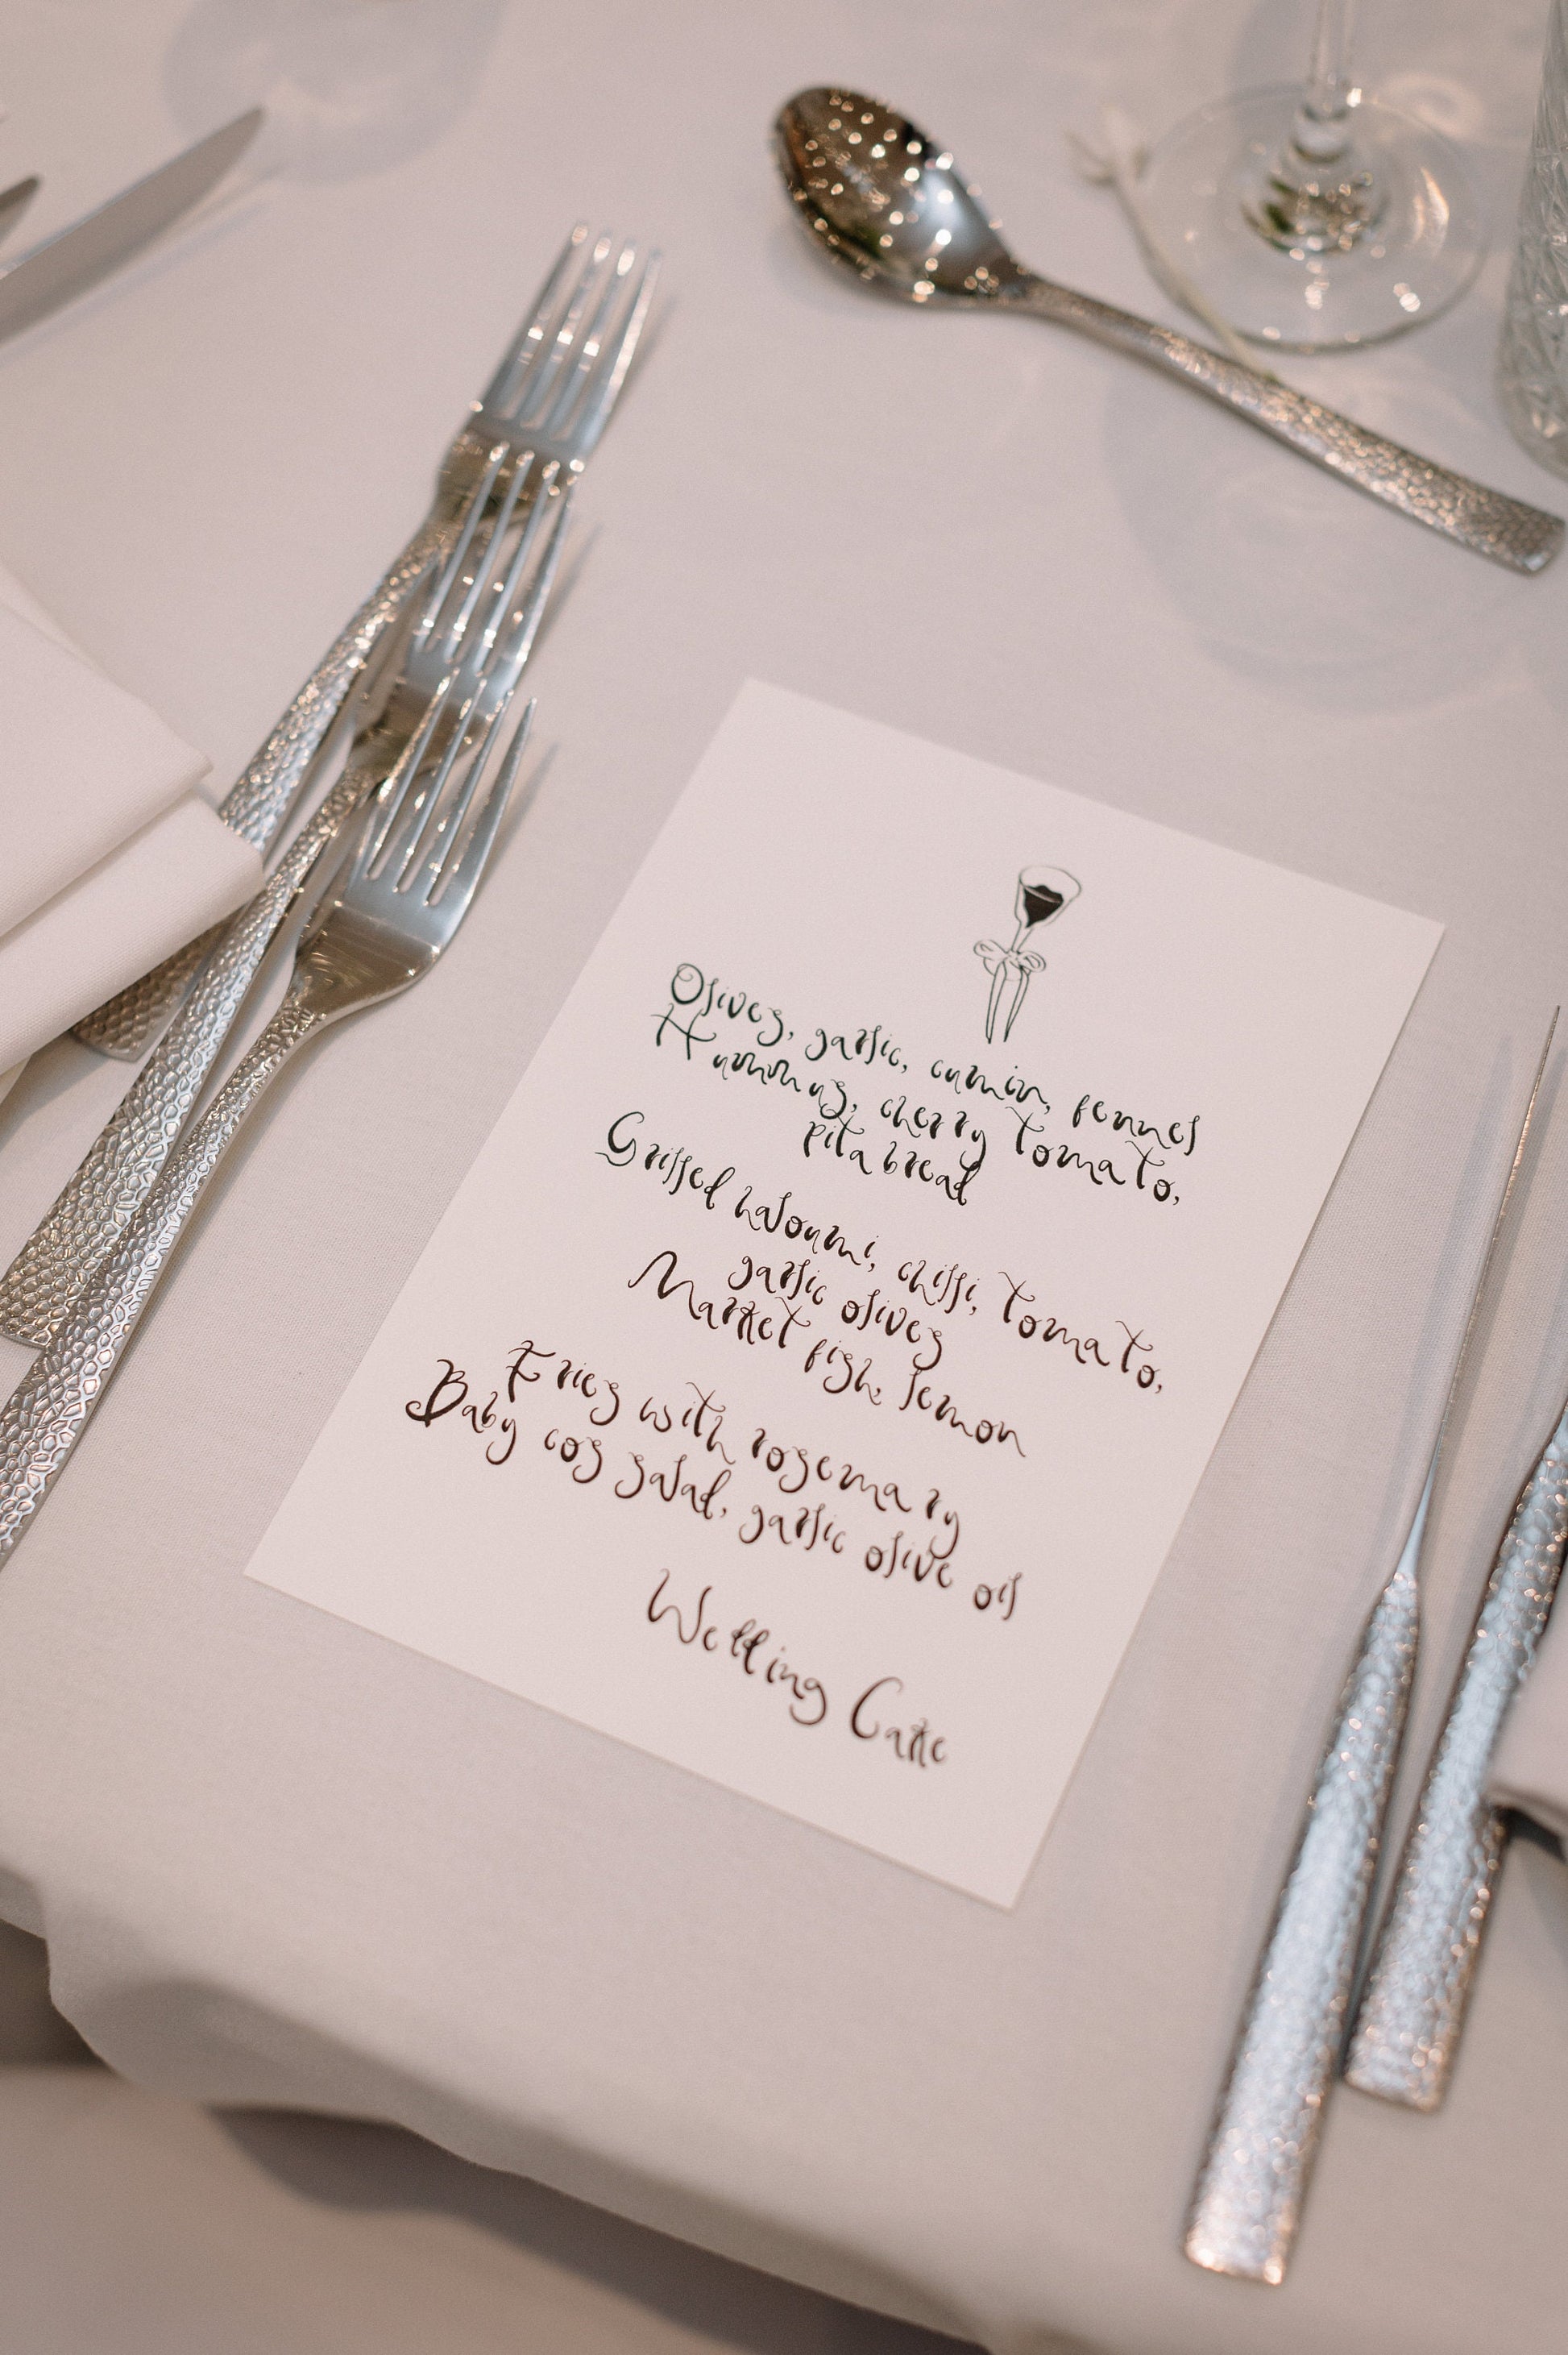 Olives, garlic, cumin, fennel
Hummus, cherry tomato,
pita bread
Grilled haloumi, chilli, tomato,
garlic olives
Market fish, lemon
Fries with rosemary
Baby cos salad, garlic olive oil
Wedding Cake